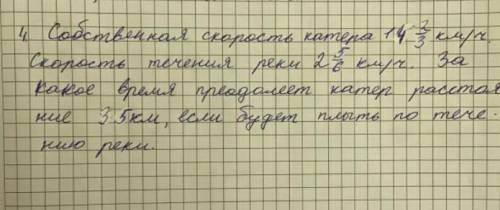 4. Собственная скорость катера 14 2/3 км/ч.
Скорость течения реки 2 5/6 км/ч. За
какое время преодолеет катер расстоя
ние 35км, если будет плыть по тече-
нию реки.